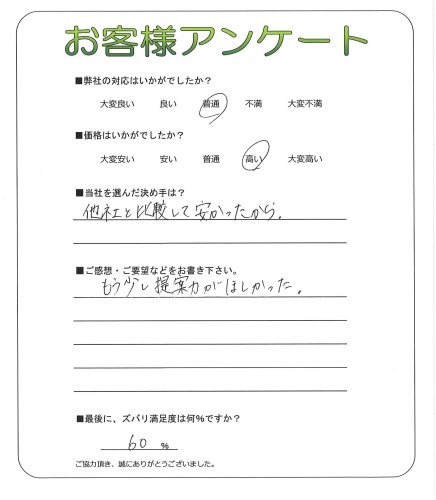 お客様アンケート
■弊社の対応はいかがでしたか?
大変良い 良い 普通 不満 大変不満
■価格はいかがでしたか?
大変安い 安い 普通 高い 大変高い
■当社を選んだ決め手は?
他社と比較して安かったから.
■ご感想・ご要望などをお書き下さい。
もう少し提案力がほしかった。
■最後に、ズバリ満足度は何%ですか?
60 %
ご協力頂き、誠にありがとうございました。